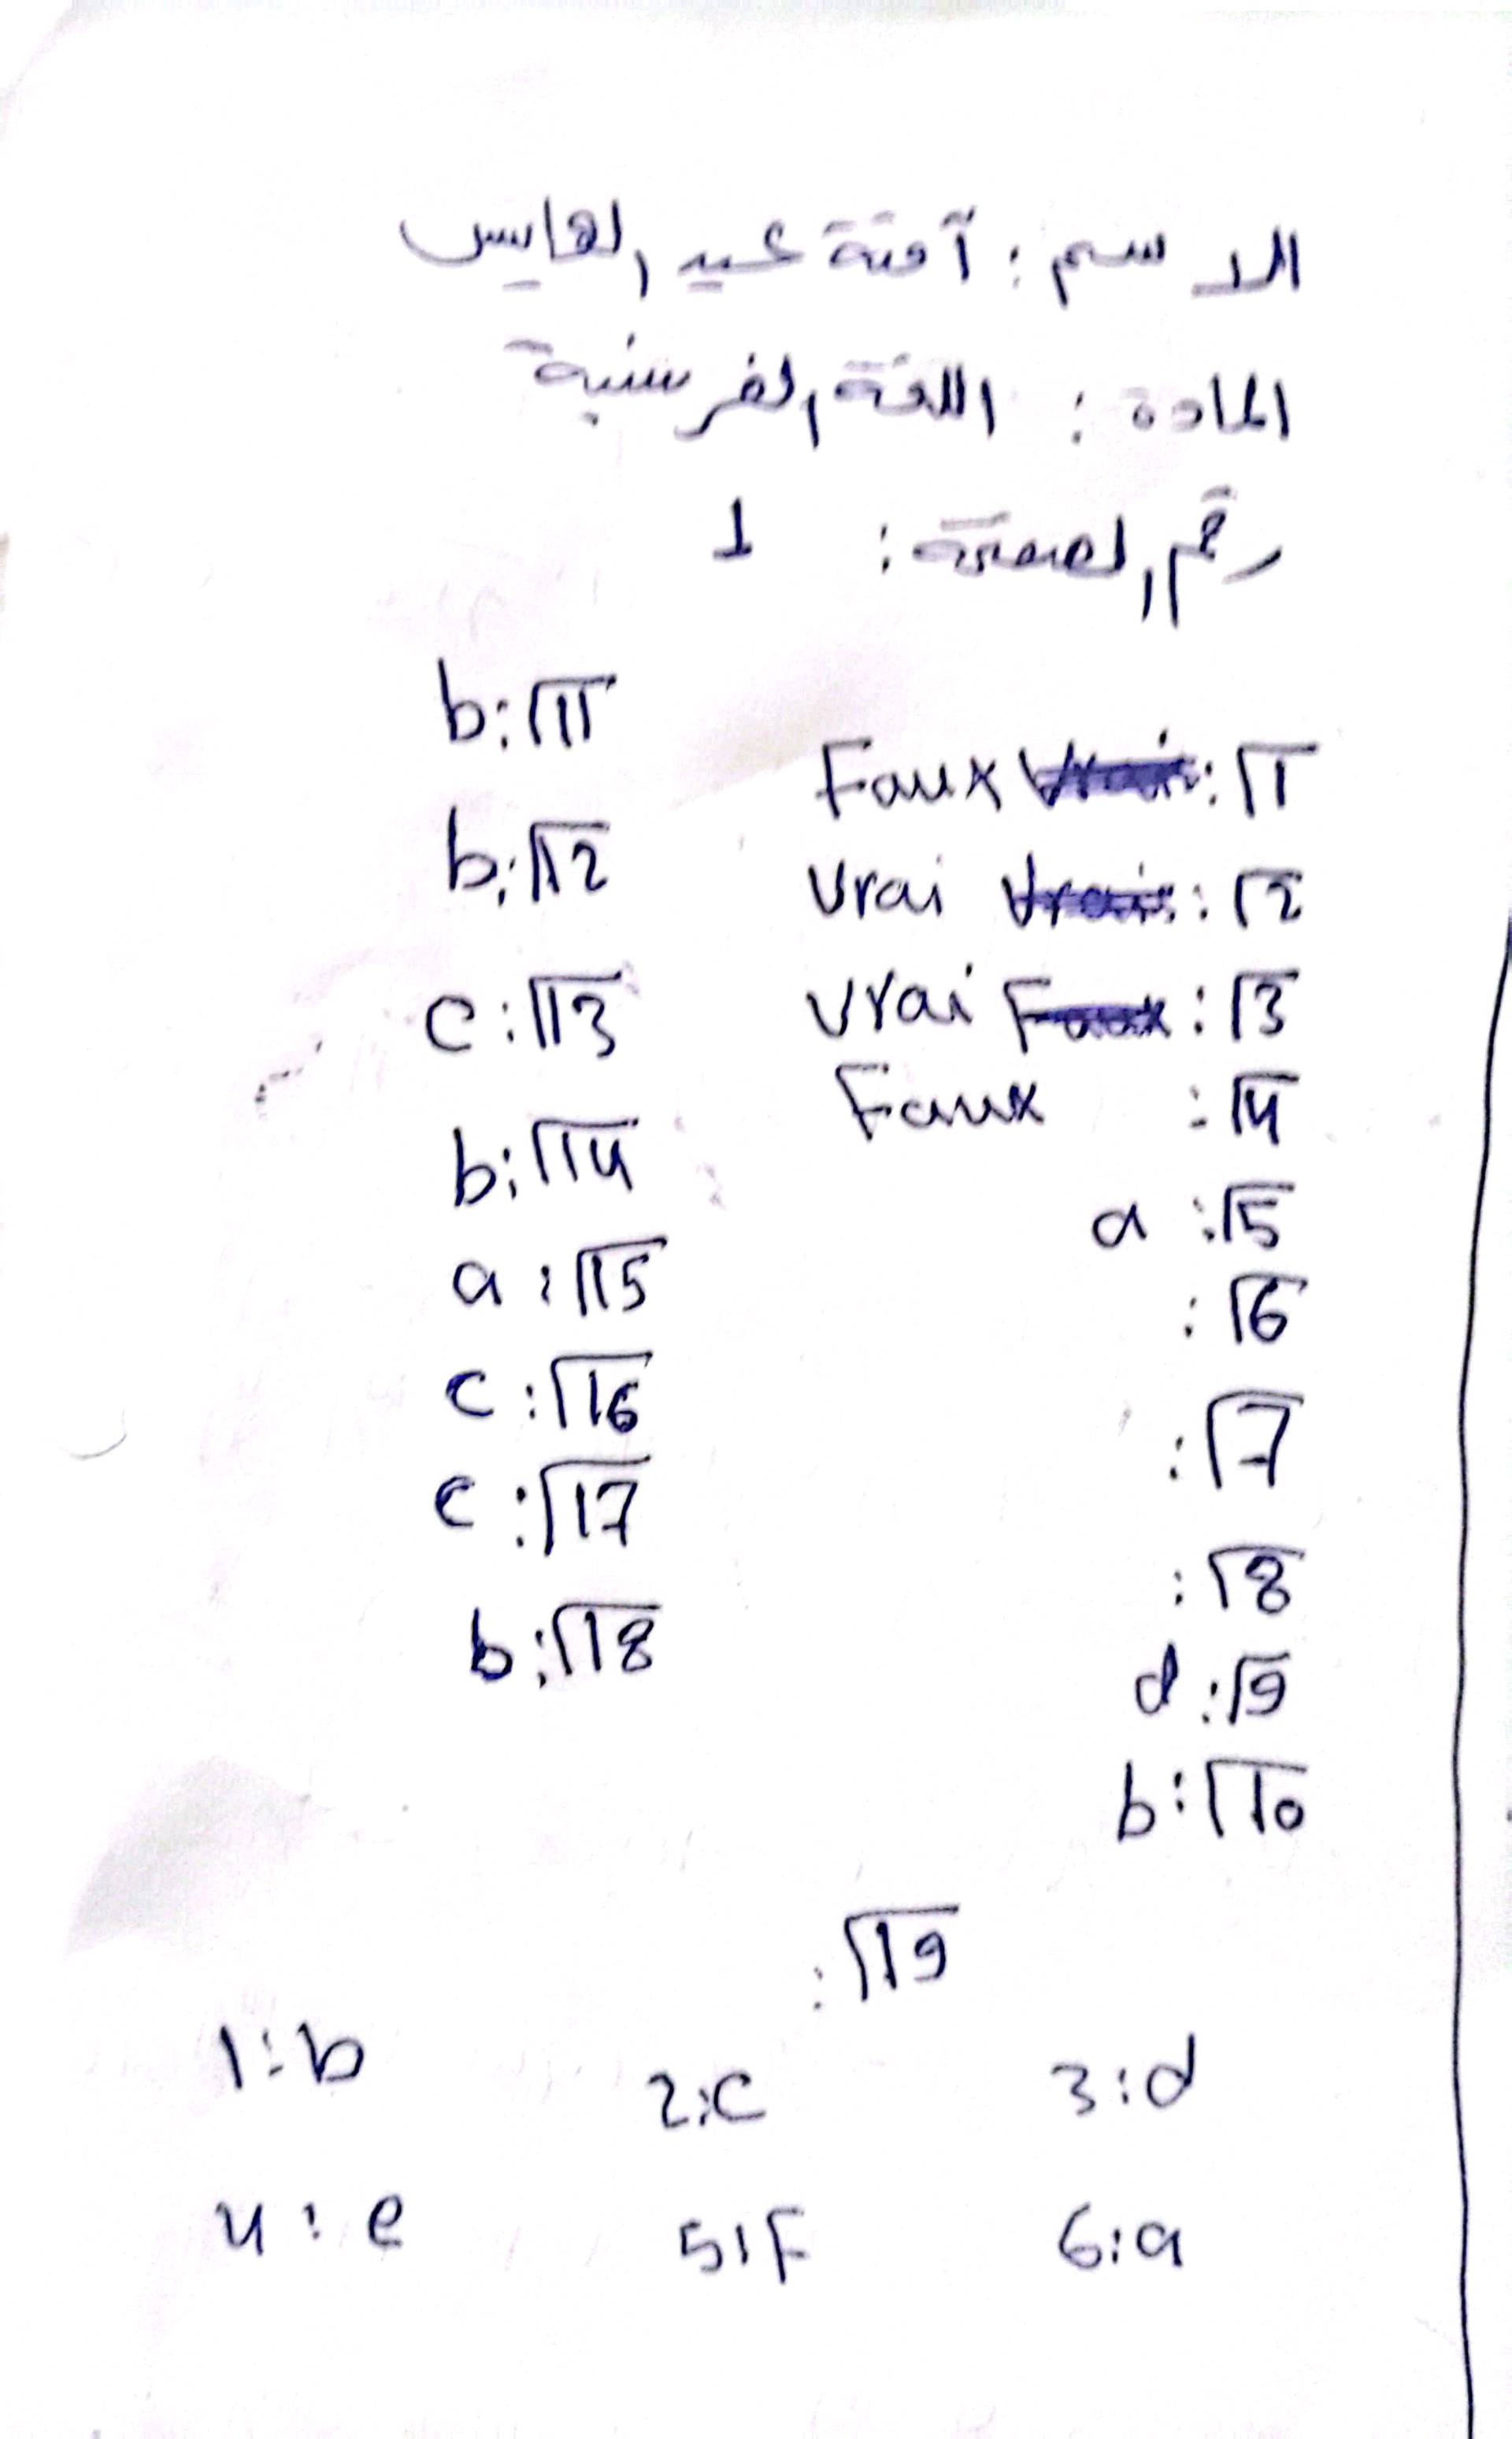 الاسم : آمنة عيد الهايس
المادة : اللغة الفرسنية
رقم الصفحة : 1
1: Faux
2: Vrai
3: Vrai
4: Faux
5: a
6:
7:
8:
9: d
10: b
11: b
12: b
13: c
14: b
15: a
16: c
17: c
18: b
19:
1:b 2:c 3:d
4:e 5:F 6:a